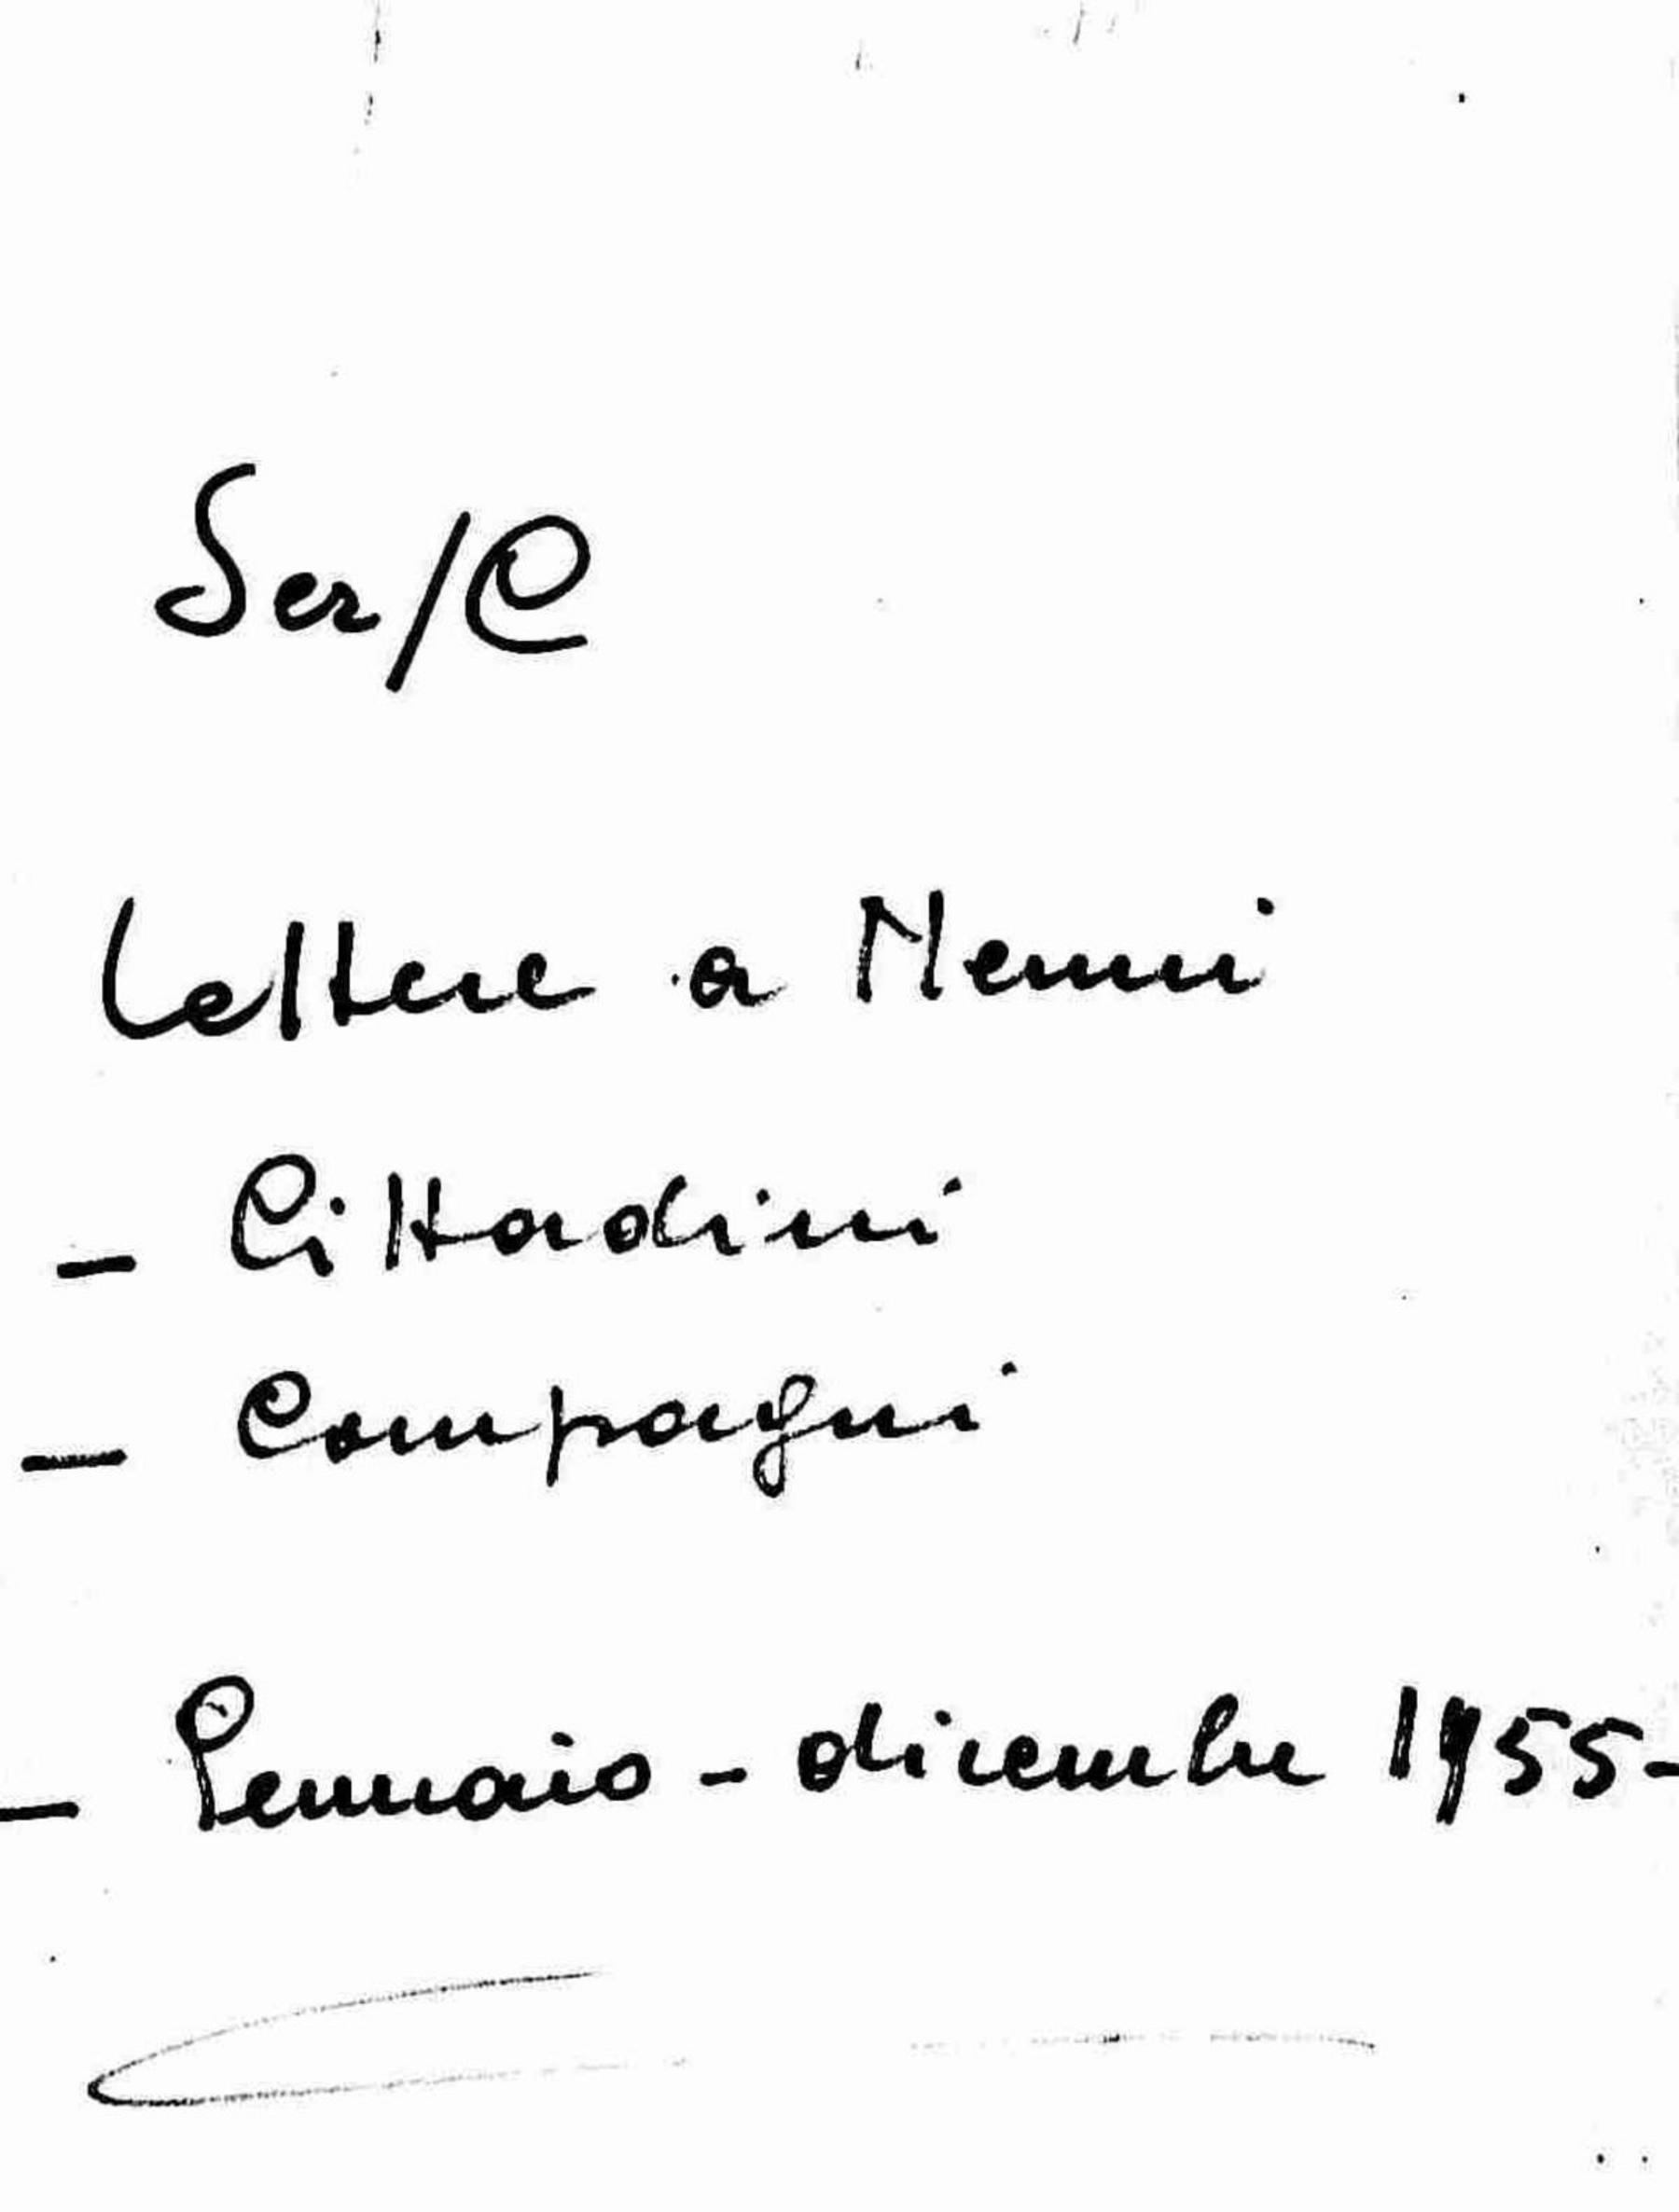 Ser/C
Lettere a Nenni
- Cittadini
- Compagni
- Gennaio - dicembre 1955-